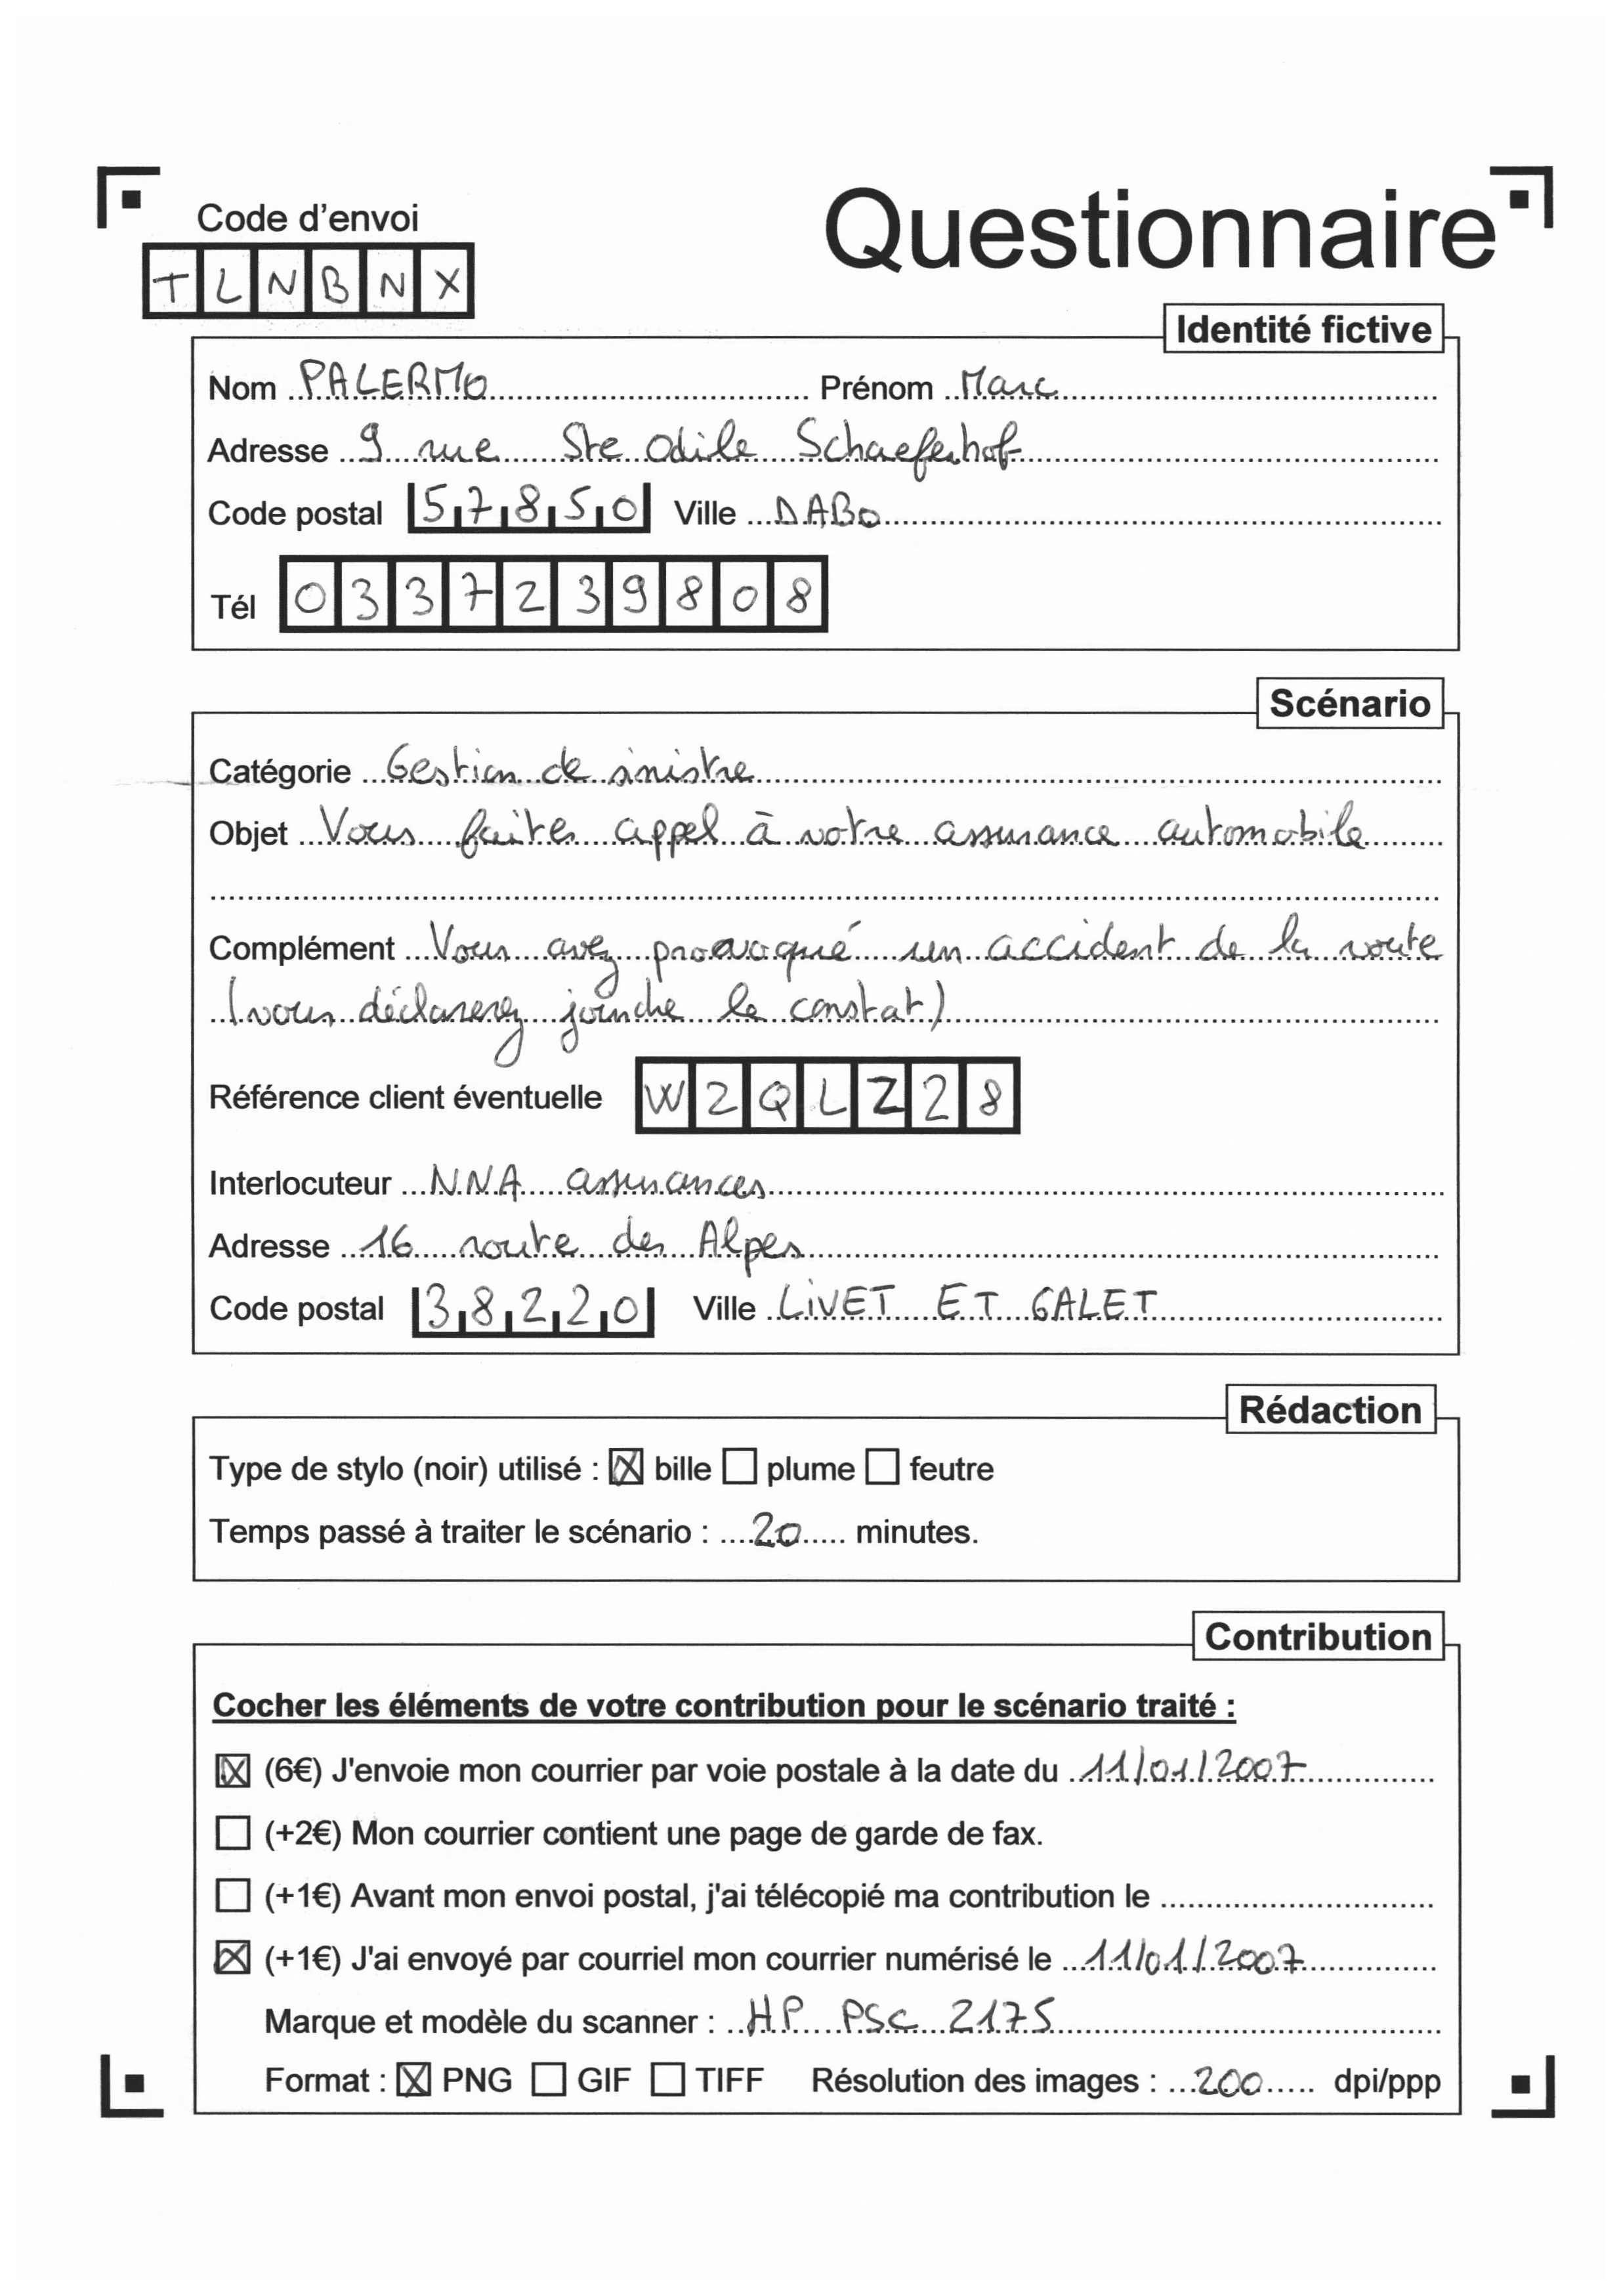 Code d'envoi
Questionnaire
T L N B N X
Identité fictive
Nom PALERMO Prénom Marc
Adresse 9 rue Ste Odile Schaeferhof
Code postal 57850 Ville DABO
Tél 0337239808
Scénario
Catégorie Gestion de sinistre
Objet Vous faites appel à votre assurance automobile
Complément Vous avez provoqué un accident de la route
(vous déclarerez joindre le constat)
Référence client éventuelle W2QLZ28
Interlocuteur NNA assurances
Adresse 16 route des Alpes
Code postal 38220 Ville LIVET ET GALET
Rédaction
Type de stylo (noir) utilisé : ☒ bille ☐ plume ☐ feutre
Temps passé à traiter le scénario : 20 minutes.
Contribution
Cocher les éléments de votre contribution pour le scénario traité :
☒ (6€) J'envoie mon courrier par voie postale à la date du 11/01/2007
☐ (+2€) Mon courrier contient une page de garde de fax.
☐ (+1€) Avant mon envoi postal, j'ai télécopié ma contribution le
☒ (+1€) J'ai envoyé par courriel mon courrier numérisé le 11/01/2007
Marque et modèle du scanner : HP PSC 2175
Format : ☒ PNG ☐ GIF ☐ TIFF Résolution des images : 200 dpi/ppp